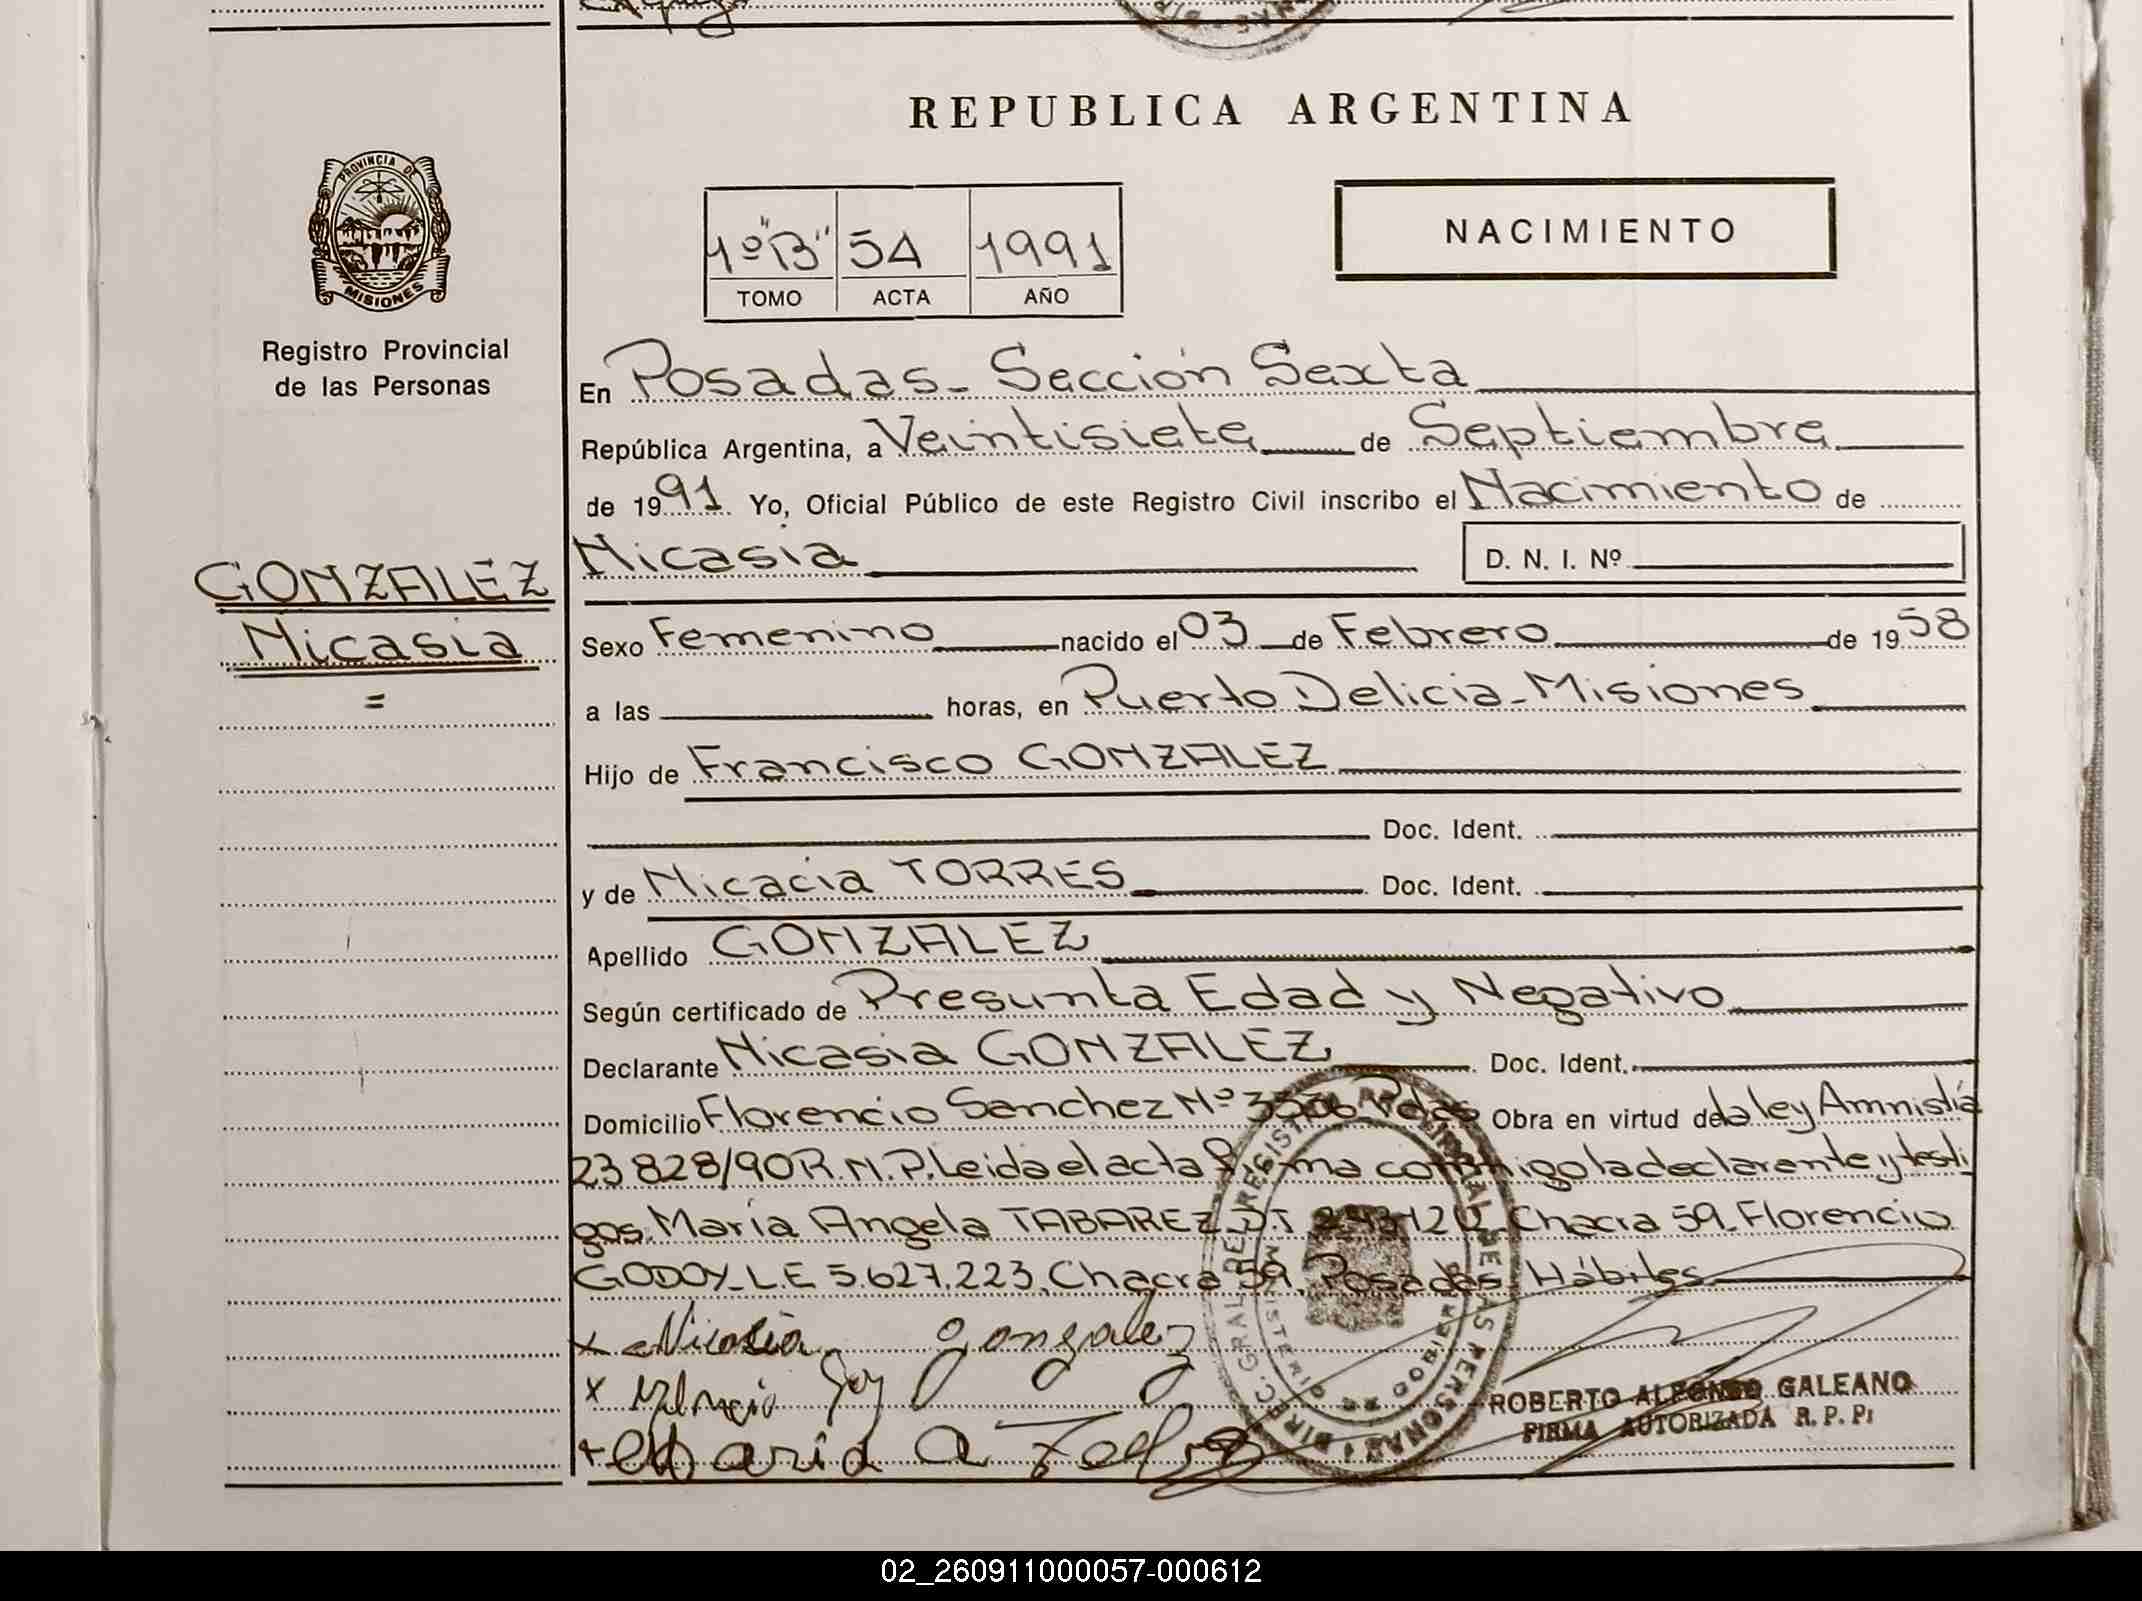 REPUBLICA ARGENTINA
PROVINCIA DE
MISIONES
Registro Provincial
de las Personas
1º"B" 54 1991
TOMO ACTA AÑO
NACIMIENTO
En Posadas - Sección Sexta
República Argentina, a Veintisiete de Septiembre
de 1991 Yo, Oficial Público de este Registro Civil inscribo el Nacimiento de
Nicasia D. N. I. Nº
GONZALEZ
Nicasia
=
Sexo Femenino nacido el 03 de Febrero de 1958
a las horas, en Puerto Delicia - Misiones
Hijo de Francisco GONZALEZ
Doc. Ident.
y de Nicacia TORRES Doc. Ident.
Apellido GONZALEZ
Según certificado de Presunta Edad y Negativo
Declarante Nicasia GONZALEZ Doc. Ident.
Domicilio Florencio Sanchez Nº Pdas Obra en virtud de la ley Amnistía
23828/90 R.N.P. Leida el acta firma conmigo la declarante y testi
gos. María Angela TABAREZ Chacra 59. Florencio
GODOY - L.E 5.627.223, Chacra 59, Posadas. Hábiles
x Nicasia gonzalez
x
+ Maria a
ROBERTO ALFONSO GALEANO
FIRMA AUTORIZADA R. P. P.
02_260911000057-000612